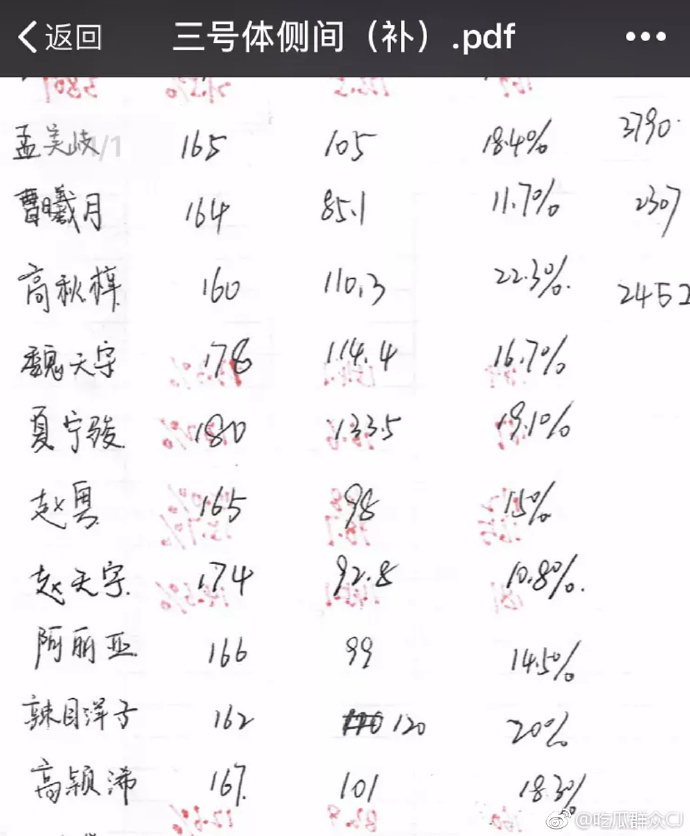 返回 三号体侧间（补）.pdf
孟美岐 1/1 165 105 18.4% 3790
曹曦月 164 85.1 11.7% 2307
高秋梓 160 110.3 22.3% 2452
魏天宇 178 114.4 16.7%
夏宁骏 180 133.5 19.1%
赵粤 165 98 15%
赵天宇 174 92.8 10.8%
阿丽亚 166 99 14.5%
辣目洋子 162 120 20%
高颖浠 167 101 18.3%
@吃瓜群众CJ